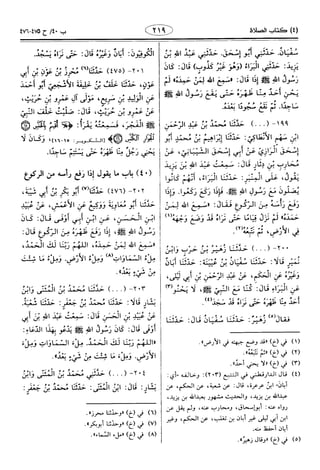 (٤) كتاب الصلاة
٢١٩
ب ٤٠/ ح ٤٧٥-٤٧٦
سُفْيَانَ. حَدَّثَنِي أَبُو إِسْحَقَ. حَدَّثَنِي عَبْدُ اللهِ بْنُ
يَزِيدَ. حَدَّثَنِي الْبَرَاءُ (وَهُوَ غَيْرُ كَذُوبٍ) قَالَ: كَانَ
رَسُولُ اللهِ ﷺ إِذَا قَالَ: «سَمِعَ اللهُ لِمَنْ حَمِدَهُ» لَمْ
يَحْنِ أَحَدٌ مِنَّا ظَهْرَهُ حَتَّى يَقَعَ رَسُولُ اللهِ ﷺ
سَاجِدًا. ثُمَّ نَقَعُ سُجُودًا بَعْدَهُ.
١٩٩- (...) حَدَّثَنَا مُحَمَّدُ بْنُ عَبْدِ الرَّحْمَنِ
ابْنِ سَهْمٍ الأَنْطَاكِيُّ: حَدَّثَنَا إِبْرَاهِيمُ بْنُ مُحَمَّدٍ أَبُو
إِسْحَقَ الْفَزَارِيُّ عَنْ أَبِي إِسْحَقَ الشَّيْبَانِيِّ، عَنْ
مُحَارِبِ بْنِ دِثَارٍ قَالَ: سَمِعْتُ عَبْدَ اللهِ بْنَ يَزِيدَ
يَقُولُ، عَلَى الْمِنْبَرِ: حَدَّثَنَا الْبَرَاءُ، أَنَّهُمْ كَانُوا
يُصَلُّونَ مَعَ رَسُولِ اللهِ ﷺ. فَإِذَا رَكَعَ رَكَعُوا. وَإِذَا
رَفَعَ رَأْسَهُ مِنَ الرُّكُوعِ فَقَالَ: «سَمِعَ اللهُ لِمَنْ
حَمِدَهُ» لَمْ نَزَلْ قِيَامًا حَتَّى نَرَاهُ قَدْ وَضَعَ وَجْهَهُ(١)
فِي الأَرْضِ، ثُمَّ نَتَّبِعُهُ(٢).
٢٠٠- (...) حَدَّثَنَا زُهَيْرُ بْنُ حَرْبٍ وَابْنُ
نُمَيْرٍ قَالَا: حَدَّثَنَا سُفْيَانُ بْنُ عُيَيْنَةَ: حَدَّثَنَا أَبَانُ
وَغَيْرُهُ عَنِ الْحَكَمِ، عَنْ عَبْدِ الرَّحْمَنِ بْنِ أَبِي لَيْلَى،
عَنِ الْبَرَاءِ قَالَ: كُنَّا مَعَ النَّبِيِّ ﷺ. لَا يَحْنُو(٣)
أَحَدٌ مِنَّا ظَهْرَهُ حَتَّى نَرَاهُ قَدْ سَجَدَ(٤).
فَقَالَ(٥) زُهَيْرٌ: حَدَّثَنَا سُفْيَانُ قَالَ: حَدَّثَنَا
(١) في (خ) «قد وضع جبهته في الأرض».
(٢) في (خ) «ثم نَتَّبِعُهُ».
(٣) في (خ) «لا يحني أحد».
(٤) قال الدارقطني في التتبع (٢٠٣): وخالفه -أي:
أبان- ابنُ عرعرة، قال: عن شعبة، عن الحكم، عن
عبدالله بن يزيد، والحديث مشهور بعبدالله بن يزيد،
رواه عنه: أبوإسحاق، ومحارب عنه، ولم يقل عن
ابن أبي ليلى غير أبان بن تغلب، عن الحكم، وغير
أبان أحفظ منه.
(٥) في (خ) «وقال زهير».
الْكُوفِيُّونَ: أَبَانُ وَغَيْرُهُ قَالَ: حَتَّى نَرَاهُ يَسْجُدُ.
٢٠١- (٤٧٥) حَدَّثَنَا(٦) مُحْرِزُ بْنُ عَوْنِ بْنِ أَبِي
عَوْنٍ: حَدَّثَنَا خَلَفُ بْنُ خَلِيفَةَ الأَشْجَعِيُّ أَبُو أَحْمَدَ
عَنِ الْوَلِيدِ بْنِ سَرِيعٍ، مَوْلَى آلِ عَمْرِو بْنِ حُرَيْثٍ،
عَنْ عَمْرِو بْنِ حُرَيْثٍ قَالَ: صَلَّيْتُ خَلْفَ النَّبِيِّ
ﷺ الْفَجْرَ. فَسَمِعْتُهُ يَقْرَأُ: ﴿فَلَا أُقْسِمُ بِالْخُنَّسِ
الْجَوَارِ الْكُنَّسِ﴾ [التكوير: ١٥، ١٦] وَكَانَ لَا
يَحْنِي رَجُلٌ مِنَّا ظَهْرَهُ حَتَّى يَسْتَتِمَّ سَاجِدًا.
(٤٠) باب ما يقول إذا رفع رأسه من الركوع
٢٠٢- (٤٧٦) حَدَّثَنَا(٧) أَبُو بَكْرِ بْنُ أَبِي شَيْبَةَ:
حَدَّثَنَا أَبُو مُعَاوِيَةَ وَوَكِيعٌ عَنِ الأَعْمَشِ، عَنْ عُبَيْدِ
ابْنِ الْحَسَنِ، عَنِ ابْنِ أَبِي أَوْفَى قَالَ: كَانَ
رَسُولُ اللهِ ﷺ، إِذَا رَفَعَ ظَهْرَهُ مِنَ الرُّكُوعِ قَالَ:
«سَمِعَ اللهُ لِمَنْ حَمِدَهُ. اللَّهُمَّ رَبَّنَا لَكَ الْحَمْدُ.
مِلْءُ السَّمَاوَاتِ(٨) وَمِلْءُ الأَرْضِ. وَمِلْءُ مَا شِئْتَ
مِنْ شَيْءٍ بَعْدُ».
٢٠٣- (...) حَدَّثَنَا مُحَمَّدُ بْنُ الْمُثَنَّى وَابْنُ
بَشَّارٍ قَالَا: حَدَّثَنَا مُحَمَّدُ بْنُ جَعْفَرٍ: حَدَّثَنَا شُعْبَةُ،
عَنْ عُبَيْدِ بْنِ الْحَسَنِ قَالَ: سَمِعْتُ عَبْدَ اللهِ بْنَ أَبِي
أَوْفَى قَالَ: كَانَ رَسُولُ اللهِ ﷺ يَدْعُو بِهَذَا الدُّعَاءِ:
«اللَّهُمَّ رَبَّنَا لَكَ الْحَمْدُ. مِلْءُ السَّمَاوَاتِ وَمِلْءُ
الأَرْضِ. وَمِلْءُ مَا شِئْتَ مِنْ شَيْءٍ بَعْدُ».
٢٠٤- (...) حَدَّثَنَا مُحَمَّدُ بْنُ الْمُثَنَّى وَابْنُ
بَشَّارٍ: قَالَ: ابْنُ الْمُثَنَّى: حَدَّثَنَا مُحَمَّدُ بْنُ جَعْفَرٍ:
(٦) في (خ) «وحدثنا محرز».
(٧) في (خ) «وحدثنا أبوبكر».
(٨) في (خ) «ملء السماء».